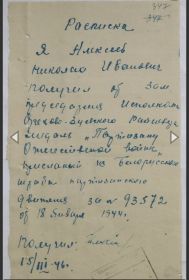 347
342
Расписка
Я Алексеев
Николай Иванович
получил от Зам
председателя Исполкома
Орехово-Зуевского Райсовета
Медаль "Партизану
Отечественной войны"
присланый из Белорусского
штаба партизанского
движения за № 93572
от 18 января 1944г.
Получил
15/III-46г.